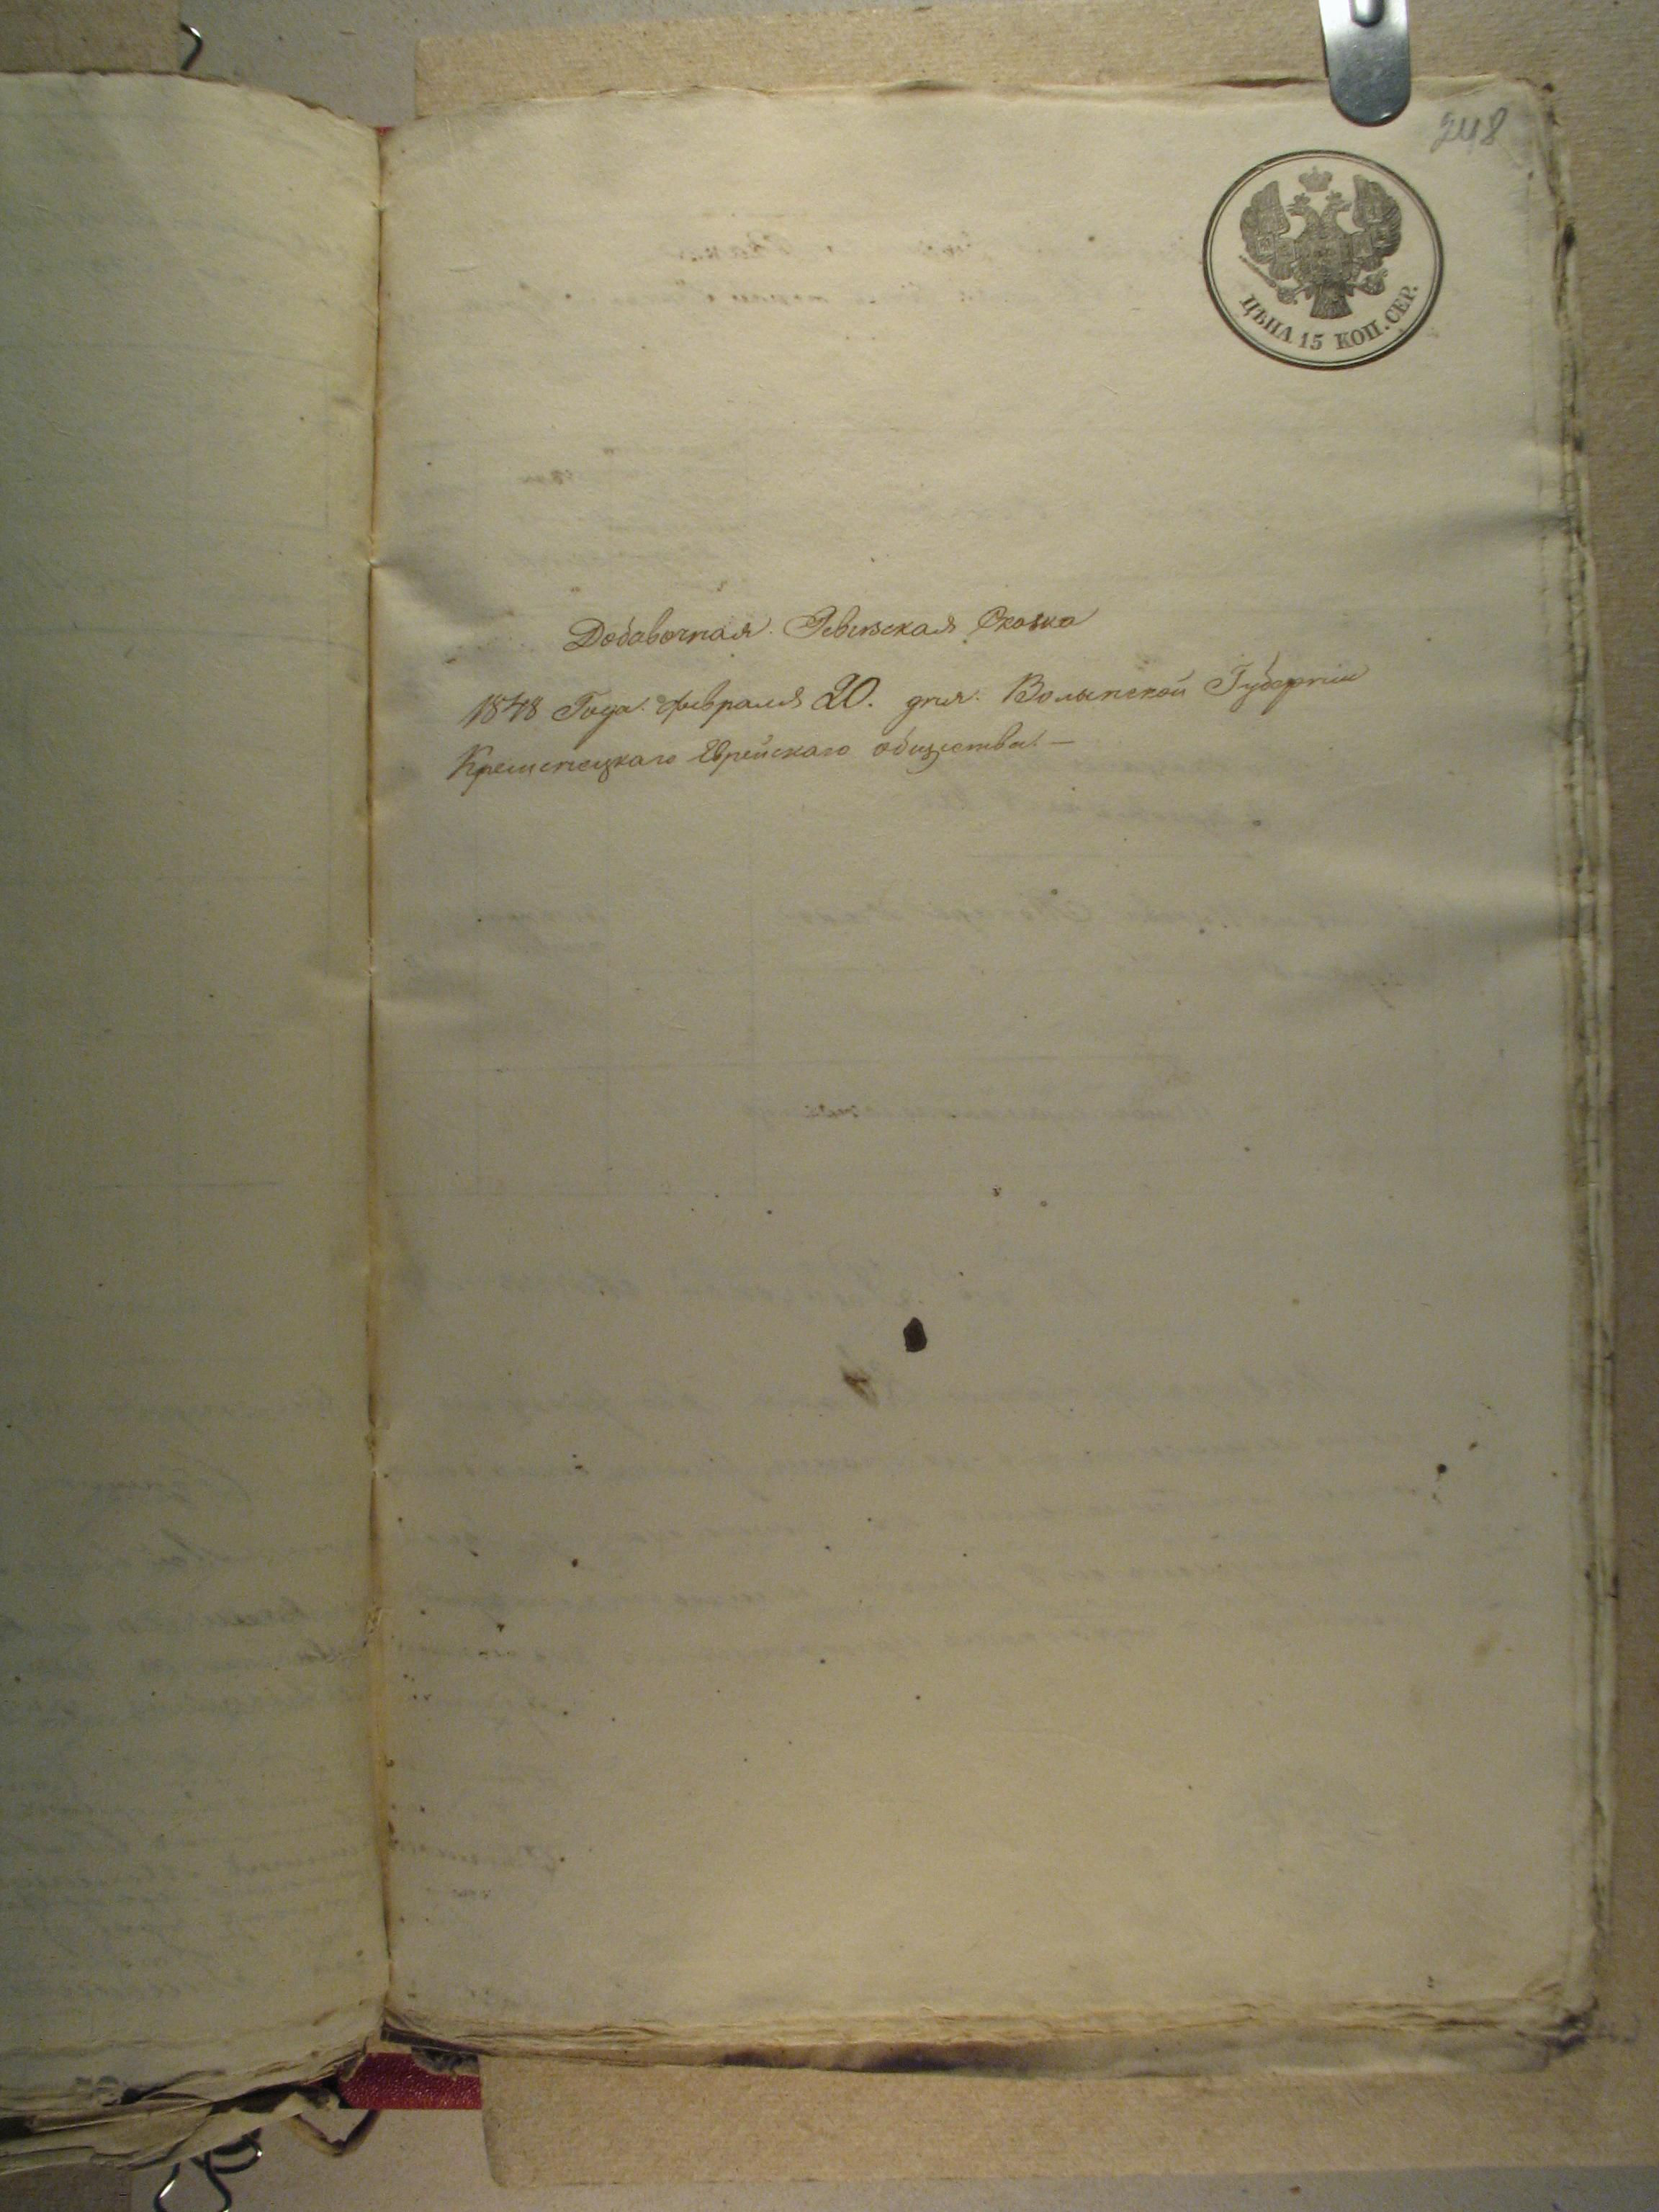 248
ЦѢНА 15 КОП. СЕР.
Добавочная Ревизская Сказка
1848 Года Февраля 20. дня. Волынской Губернии
Кременецкаго Еврейскаго общества. —